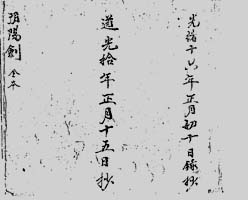 光緒十六年正月初十日錄抄
道光拾年正月十五日抄
陽劍 全本